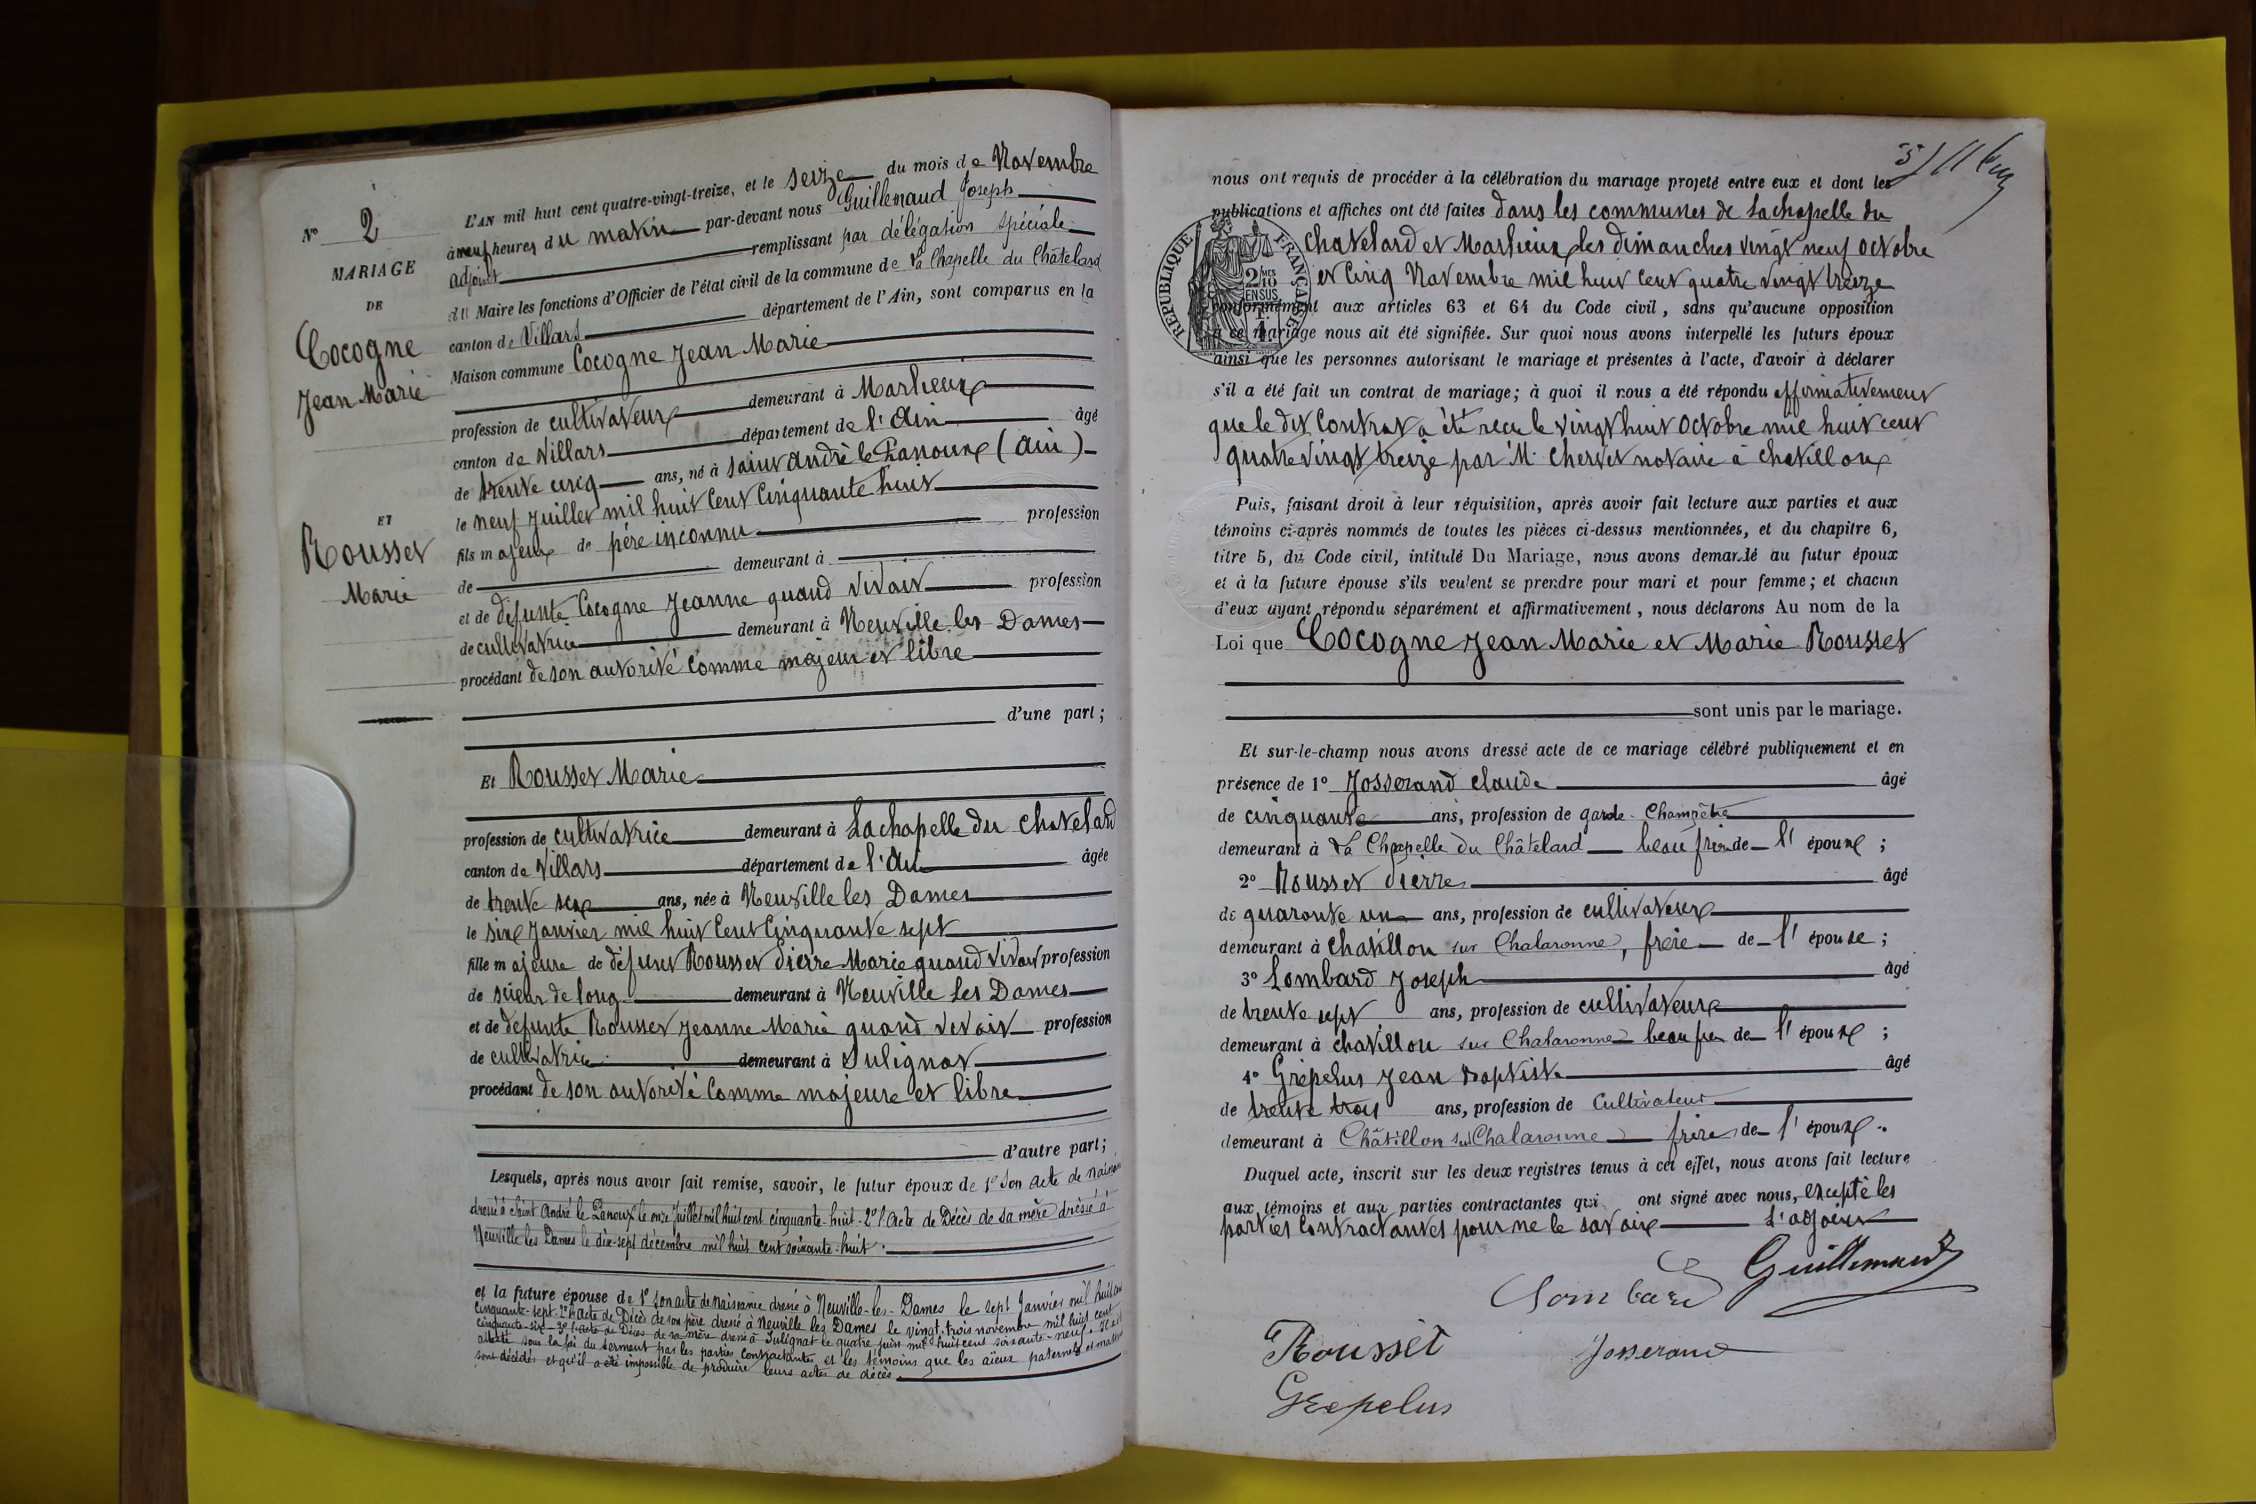 L'AN mil huit cent quatre-vingt-treize, et le seize du mois de Novembre
N° 2
à neuf heures du matin par-devant nous Guillemaud Joseph
adjoint remplissant par délégation spéciale
MARIAGE
du Maire les fonctions d'Officier de l'état civil de la commune de La Chapelle du Châtelard
DE
canton de Villars département de l'Ain, sont comparus en la
Cocogne
Maison commune Cocogne Jean Marie
Jean Marie
profession de cultivateur demeurant à Marlieux
canton de Villars département de l'Ain âgé
de trente cinq ans, né à saint André le Panoux (Ain)
le neuf Juillet mil huit cent cinquante huit
ET
fils majeur de père inconnu profession
Rousset
de demeurant à
Marie
et de défunte Cocogne Jeanne quand vivait profession
de cultivatrice demeurant à Neuville les Dames
procédant de son autorité comme majeur et libre
d'une part;
Et Rousset Marie
profession de cultivatrice demeurant à Lachapelle du Chatelard
canton de Villars département de l'Ain âgée
de trente six ans, née à Neuville les Dames
le six Janvier mil huit cent cinquante sept
fille majeure de défunt Rousset Pierre Marie quand vivait profession
de scieur de long demeurant à Neuville les Dames
et de défunte Rousset Jeanne Marie quand vivait profession
de cultivatrice demeurant à Sulignat
procédant de son autorité comme majeure et libre
d'autre part;
Lesquels, après nous avoir fait remise, savoir, le futur époux de 1° son acte de naissance
dressé à Saint André le Panoux le onze Juillet mil huit cent cinquante-huit. 2° l'acte de Décès de sa mère dressé à
Neuville les Dames le dix-sept décembre mil huit cent soixante-huit.
et la future épouse de 1° son acte de naissance dressé à Neuville-les-Dames le sept Janvier mil huit cent
cinquante-sept. 2° l'acte de Décès de son père dressé à Neuville les Dames le vingt-trois novembre mil huit cent
cinquante-six 3° l'acte de Décès de sa mère dressé à Sulignat le quatre juin mil huit cent soixante-neuf. Il est
attesté sous la foi du serment par les parties contractantes et les témoins que les aïeux paternels et mat
sont décédés et qu'il a été impossible de produire leurs actes de décès.
nous ont requis de procéder à la célébration du mariage projeté entre eux et dont les
publications et affiches ont été faites dans les communes de Lachapelle du
Chatelard et Marlieux les dimanches vingt neuf octobre
et cinq Novembre mil huit cent quatre vingt treize
RÉPUBLIQUE FRANÇAISE
2/10 EN SUS
conformément aux articles 63 et 64 du Code civil, sans qu'aucune opposition
à ce mariage nous ait été signifiée. Sur quoi nous avons interpellé les futurs époux
ainsi que les personnes autorisant le mariage et présentes à l'acte, d'avoir à déclarer
s'il a été fait un contrat de mariage; à quoi il nous a été répondu affirmativement
que le dit Contrat a été recu le vingt huit Octobre mil huit cent
quatre vingt treize par M. Chervet notaire à Chatillon
Puis, faisant droit à leur réquisition, après avoir fait lecture aux parties et aux
témoins ci-après nommés de toutes les pièces ci-dessus mentionnées, et du chapitre 6,
titre 5, du Code civil, intitulé Du Mariage, nous avons demandé au futur époux
et à la future épouse s'ils veulent se prendre pour mari et pour femme; et chacun
d'eux ayant répondu séparément et affirmativement, nous déclarons Au nom de la
Loi que Cocogne Jean Marie et Marie Rousset
sont unis par le mariage.
Et sur-le-champ nous avons dressé acte de ce mariage célébré publiquement et en
présence de 1° Josserand Claude âgé
de cinquante ans, profession de garde-Champêtre
demeurant à La Chapelle du Châtelard beau frère de l'époux;
2° Rousset Pierre âgé
de quarante un ans, profession de cultivateur
demeurant à Chatillon sur Chalaronne, frère de l'épouse;
3° Lombard Joseph âgé
de trente sept ans, profession de cultivateur
demeurant à Chatillon sur Chalaronne beau frère de l'époux;
4° Grépelus Jean Baptiste âgé
de trente trois ans, profession de Cultivateur
demeurant à Châtillon sur Chalaronne frère de l'époux.
Duquel acte, inscrit sur les deux registres tenus à cet effet, nous avons fait lecture
aux témoins et aux parties contractantes qui ont signé avec nous, excepté les
parties contractantes pour ne le savoir L'adjoint
Guillemaud
Lombard
Rousset
Josserand
Grepelus